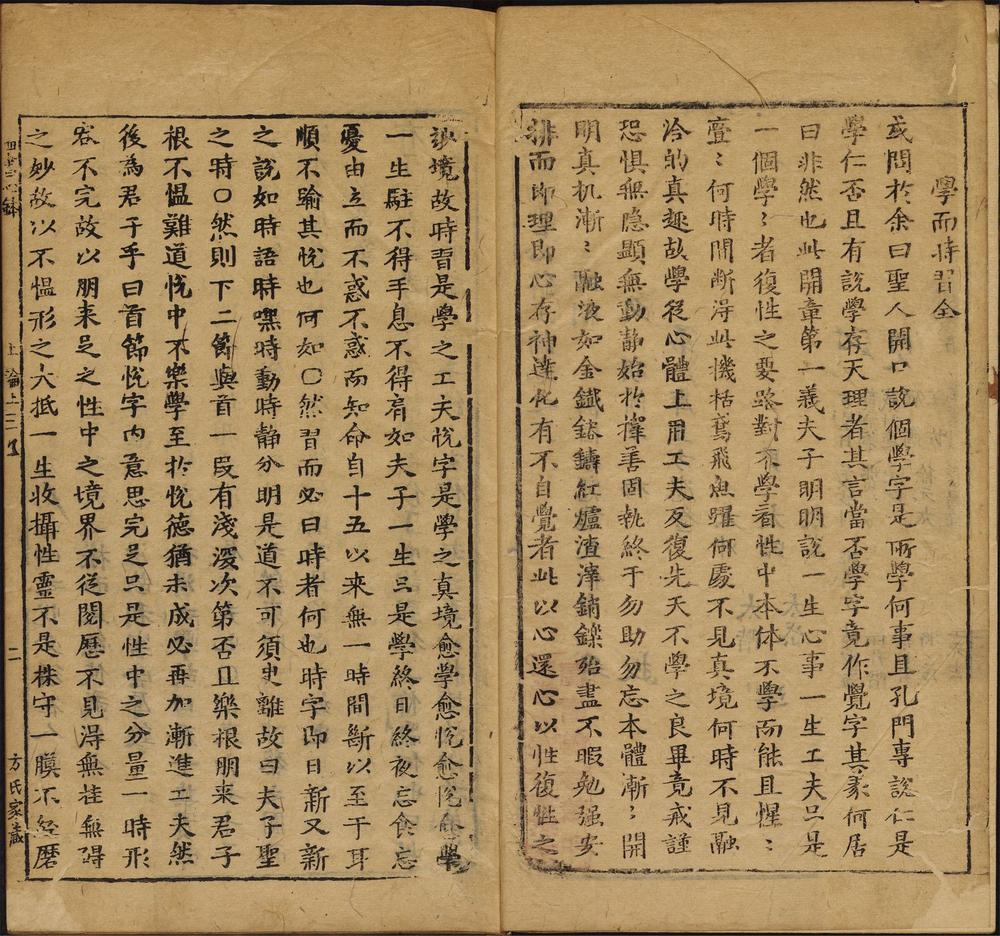 學而時習全
或問於余曰聖人開口說個學字是所學何事且孔門專說仁是
學仁否且有說學存天理者其言當否學字竟作覺字其象何居
曰非然也此開章第一義夫子明明說一生心事一生工夫只是
一個學〻者復性之要路對不學看性中本体不學而能且惺〻
亹〻何時間断淂此機栝鳶飛魚躍何處不見真境何時不見融
洽的真趣故學従心體上用工夫反復先天不學之良畢竟戒謹
恐惧無隐顕無動静始於擇善固執終于勿助勿忘本體漸〻開
明真机漸〻融液如金鐵鎔鑄紅爐渣滓銷鑠殆盡不暇勉强安
排而即理即心存神達化有不自覺者此以心還心以性復性之
妙境故時習是學之工夫悅字是學之真境愈學愈悅愈悅愈學
一生駐不得手息不得肩如夫子一生只是學終日終夜忘食忘
憂由立而不惑不惑而知命自十五以来無一時間斷以至于耳
順不踰其悅也何如〇然習而必曰時者何也時字即日新又新
之說如時語時嘿時動時静分明是道不可須臾離故曰夫子聖
之時〇然則下二節與首一叚有淺深次第否且樂根朋来君子
根不愠難道悅中不樂學至扵悅德猶未成必再加漸進工夫然
後為君子乎曰首節悅字内意思完足只是性中之分量一時形
容不完故以朋来足之性中之境界不從閱歷不見淂無挂無碍
之妙故以不愠形之大抵一生收攝性靈不是株守一膜不經磨
上論上 二
方氏家藏